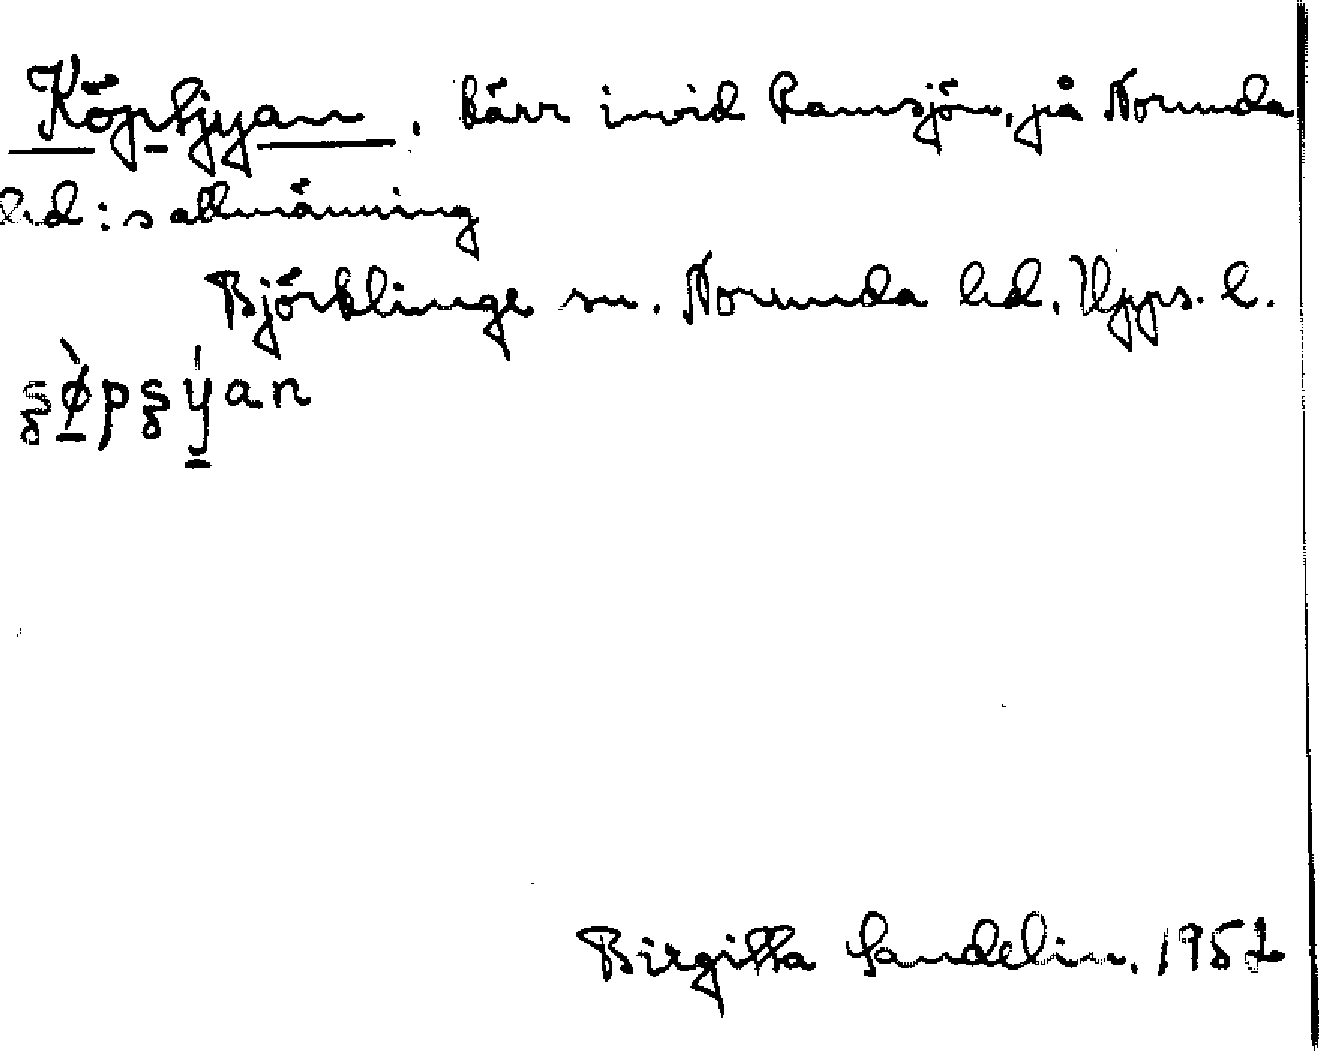 Köptjyan, kärr invid Ramsjön, på Norunda
hd:s allmänning
Björklinge sn. Norunda hd. Upps. l.
Birgitta Sandelin. 1952